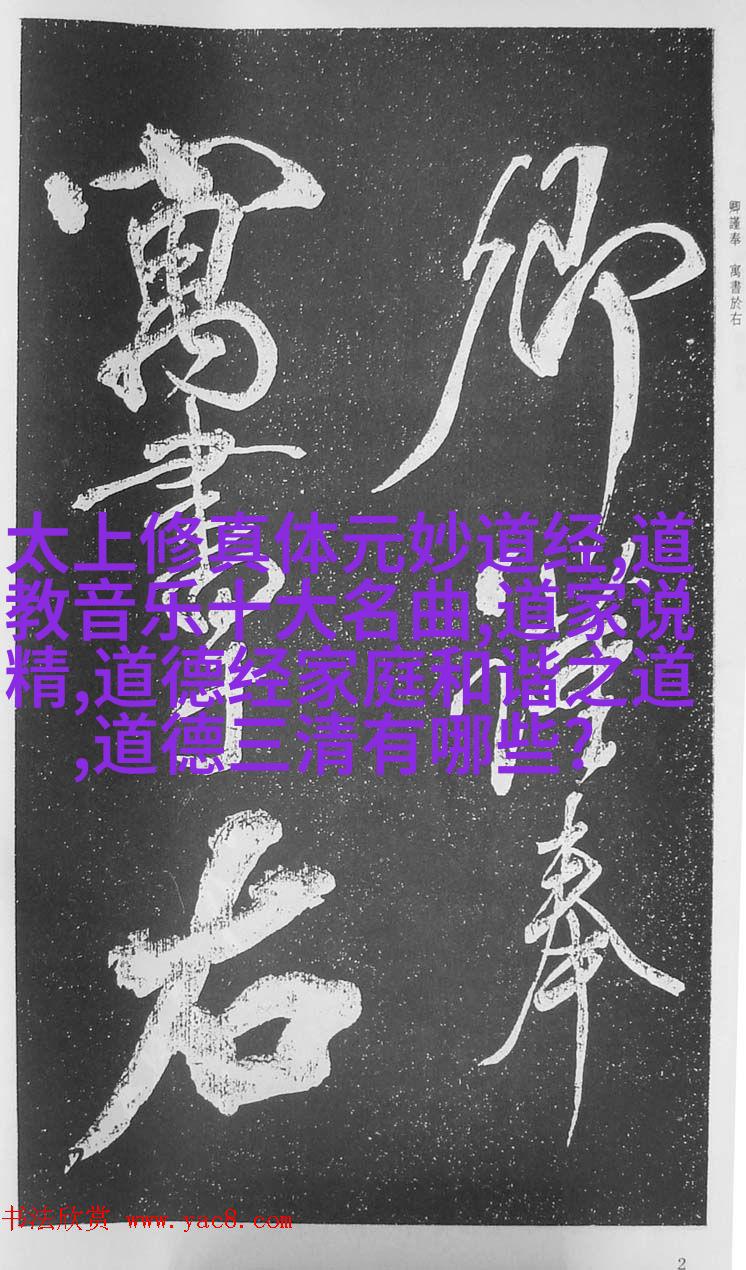 卿謹奉
寓書於右
卿謹奉 寓書於右
太上修真体元妙道经,道
教音乐十大名曲,道家说
精,道德经家庭和谐之道
,道德三清有哪些?
书法欣赏 www.yac8.com
2